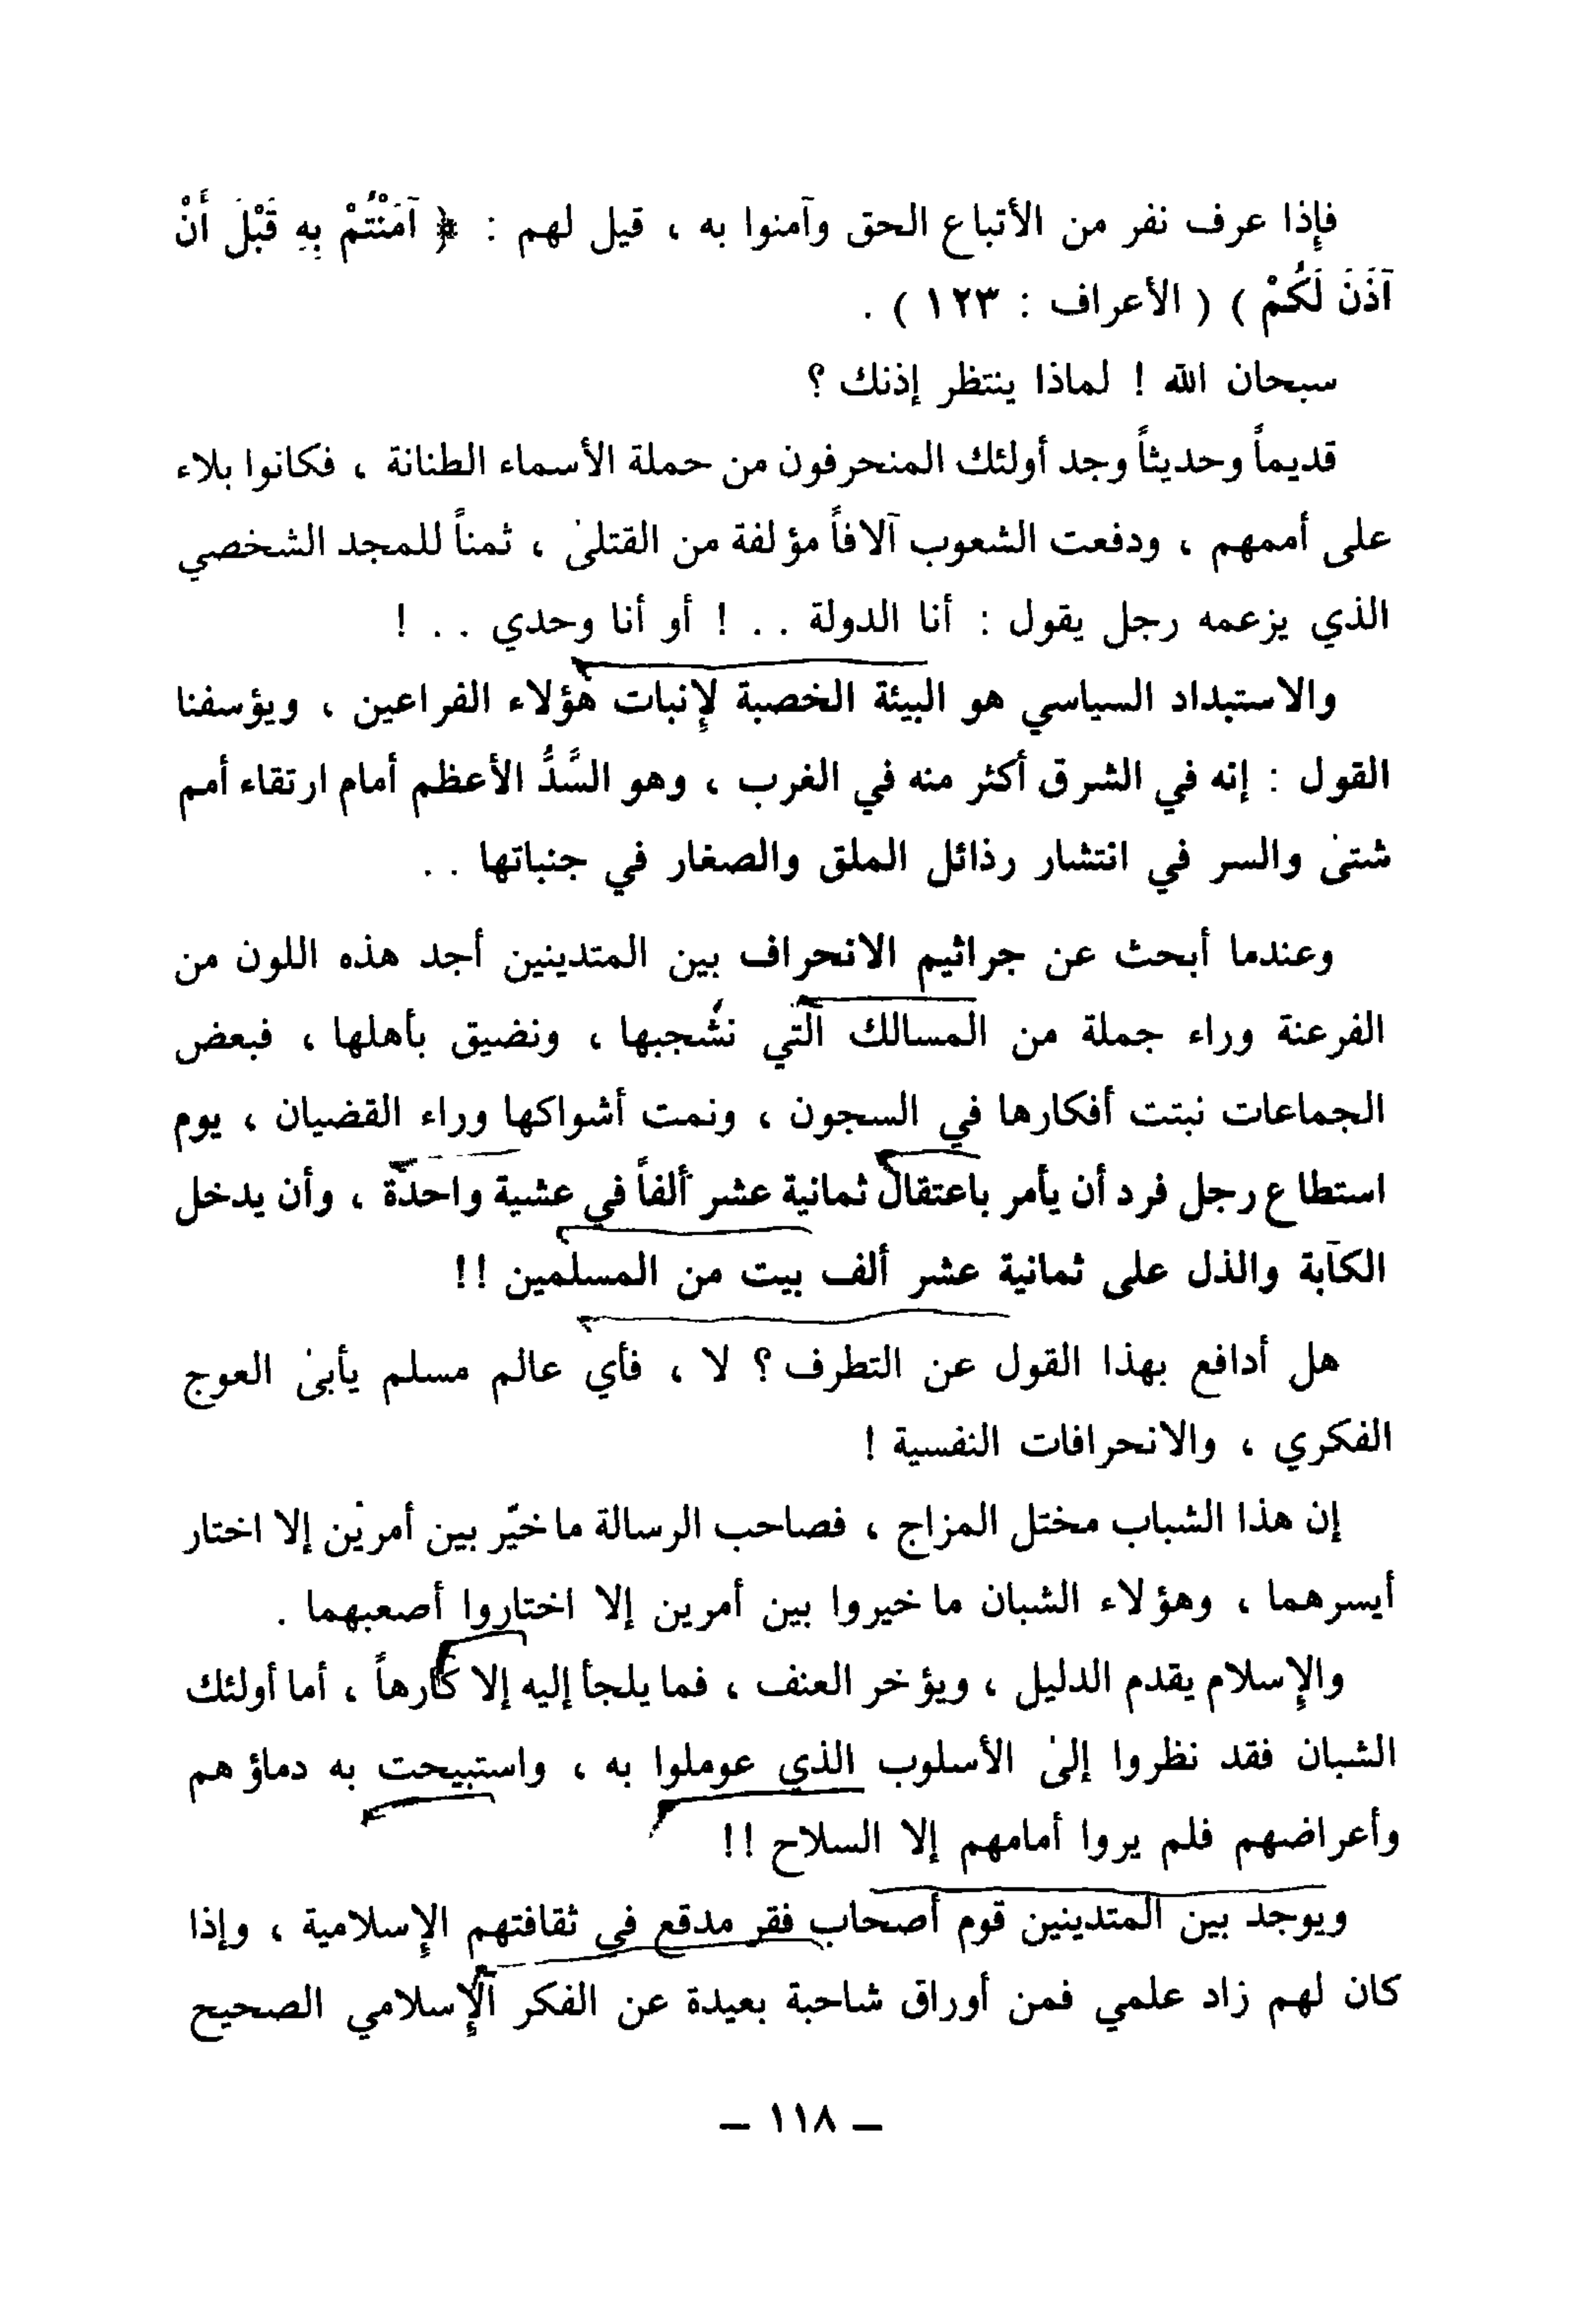 فإذا عرف نفر من الأتباع الحق وآمنوا به ، قيل لهم : ﴿ آمَنْتُمْ بِهِ قَبْلَ أَنْ
آذَنَ لَكُمْ ) ( الأعراف : ١٢٣ ) .
سبحان الله ! لماذا ينتظر إذنك ؟
قديماً وحديثاً وجد أولئك المنحرفون من حملة الأسماء الطنانة ، فكانوا بلاء
على أممهم ، ودفعت الشعوب آلافاً مؤلفة من القتلىٰ ، ثمناً للمجد الشخصي
الذي يزعمه رجل يقول : أنا الدولة . . ! أو أنا وحدي . . !
والاستبداد السياسي هو البيئة الخصبة لإنبات هؤلاء الفراعين ، ويؤسفنا
القول : إنه في الشرق أكثر منه في الغرب ، وهو السَّدُّ الأعظم أمام ارتقاء أمم
شتىٰ والسر في انتشار رذائل الملق والصغار في جنباتها . .
وعندما أبحث عن جراثيم الانحراف بين المتدينين أجد هذه اللون من
الفرعنة وراء جملة من المسالك التي نشْجبها ، ونضيق بأهلها ، فبعض
الجماعات نبتت أفكارها في السجون ، ونمت أشواكها وراء القضيان ، يوم
استطاع رجل فرد أن يأمر باعتقال ثمانية عشر ألفاً في عشية واحدة ، وأن يدخل
الكآبة والذل على ثمانية عشر ألف بيت من المسلمين !!
هل أدافع بهذا القول عن التطرف ؟ لا ، فأي عالم مسلم يأبىٰ العوج
الفكري ، والانحرافات النفسية !
إن هذا الشباب مختل المزاج ، فصاحب الرسالة ما خيّر بين أمرين إلا اختار
أيسرهما ، وهؤلاء الشبان ما خيروا بين أمرين إلا اختاروا أصعبهما .
والإسلام يقدم الدليل ، ويؤخر العنف ، فما يلجأ إليه إلا كارهاً ، أما أولئك
الشبان فقد نظروا إلىٰ الأسلوب الذي عوملوا به ، واستبيحت به دماؤهم
وأعراضهم فلم يروا أمامهم إلا السلاح !!
ويوجد بين المتدينين قوم أصحاب فقر مدقع في ثقافتهم الإسلامية ، وإذا
كان لهم زاد علمي فمن أوراق شاحبة بعيدة عن الفكر الإسلامي الصحيح
– ١١٨ –